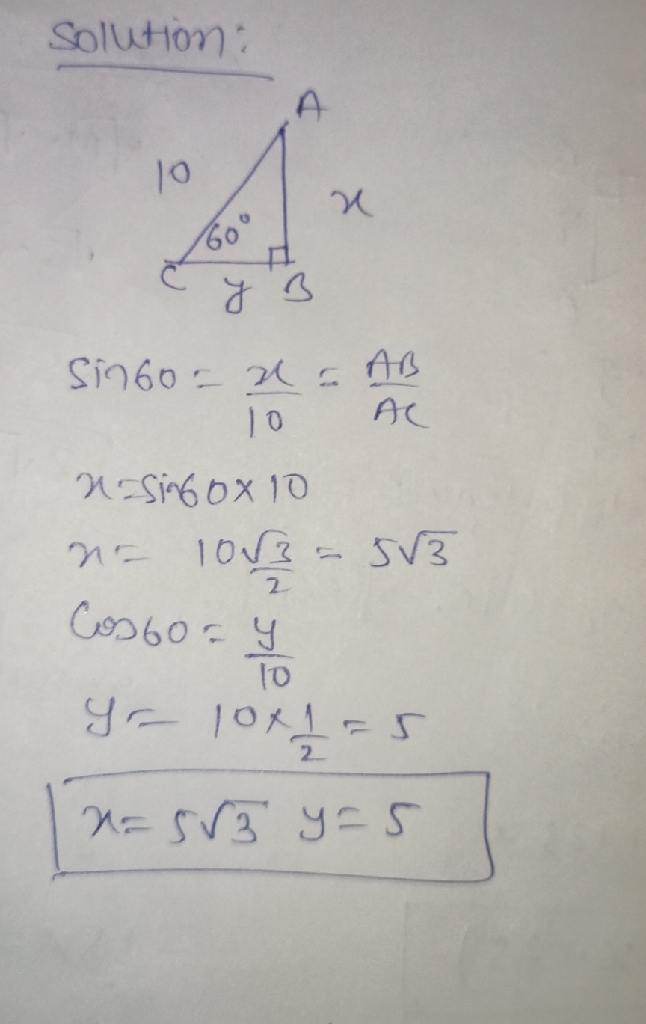 Solution:
A
10
x
60°
C y B
Sin60 = x/10 = AB/AC
x=Sin60x10
x= 10√3/2 = 5√3
Cos60 = y/10
y= 10x1/2 = 5
x= 5√3 y=5